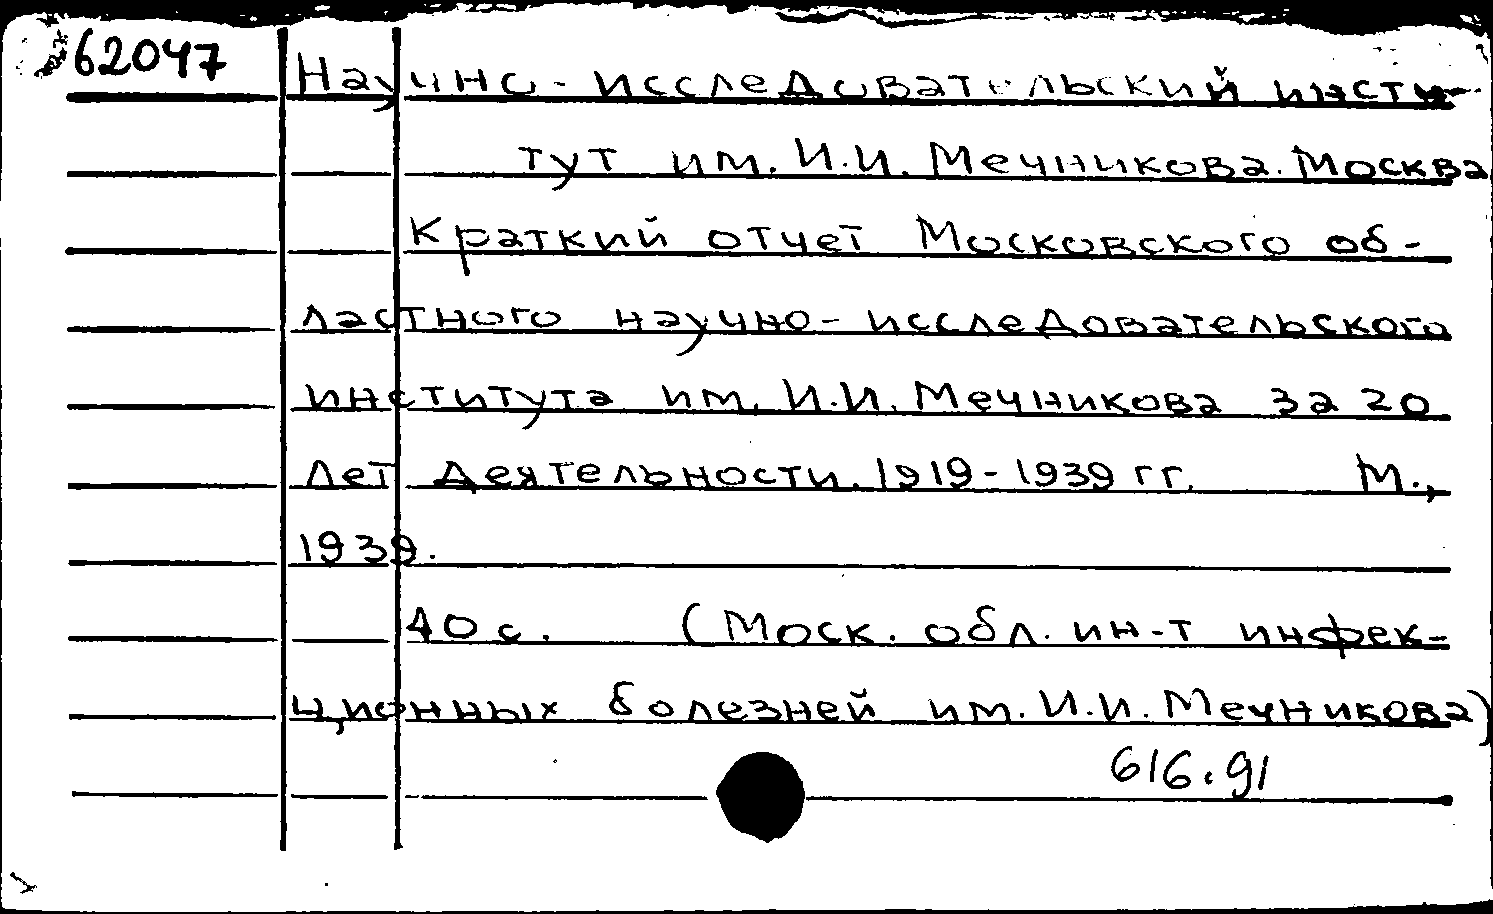 62047
Научно-исследовательский инсти-
тут им. И.И. Мечникова. Москва
Краткий отчет Московского об-
ластного научно-исследовательского
института им. И.И. Мечникова за 20
лет деятельности. 1919-1939 гг. М.,
1939.
40 с. (Моск. обл. ин-т инфек-
ционных болезней им. И.И. Мечникова)
616.91